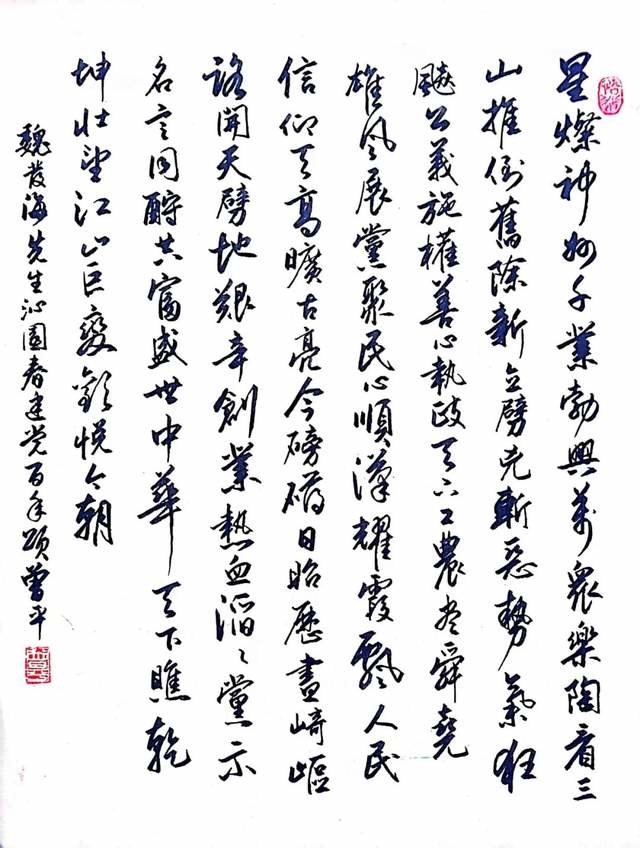 星燦神州千業勃興萬眾樂陶看三
山推倒舊除新立劈兇斬惡勢氣狂
飈公義施權善心執政天下工農尽舜堯
雄風展黨聚民心順漢耀霞飄人民
信仰天高曠古亮今磅礡日昭歷盡崎嶇
路開天劈地艱辛創業熱血滔〻黨示
名言同酹共富盛世中華天下瞧乾
坤壯望江山巨變歡悅今朝
魏發海先生沁園春建党百年頌曾平